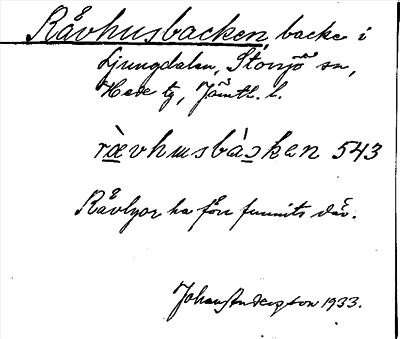 Råvhusbacken, backe i
Ljungdalen, Storsjö sn,
Hede tg, Jämtl. l.
ræ̀vhusbàsken 543
Råvlyor ha förr funnits där.
Johan Anderson 1933.